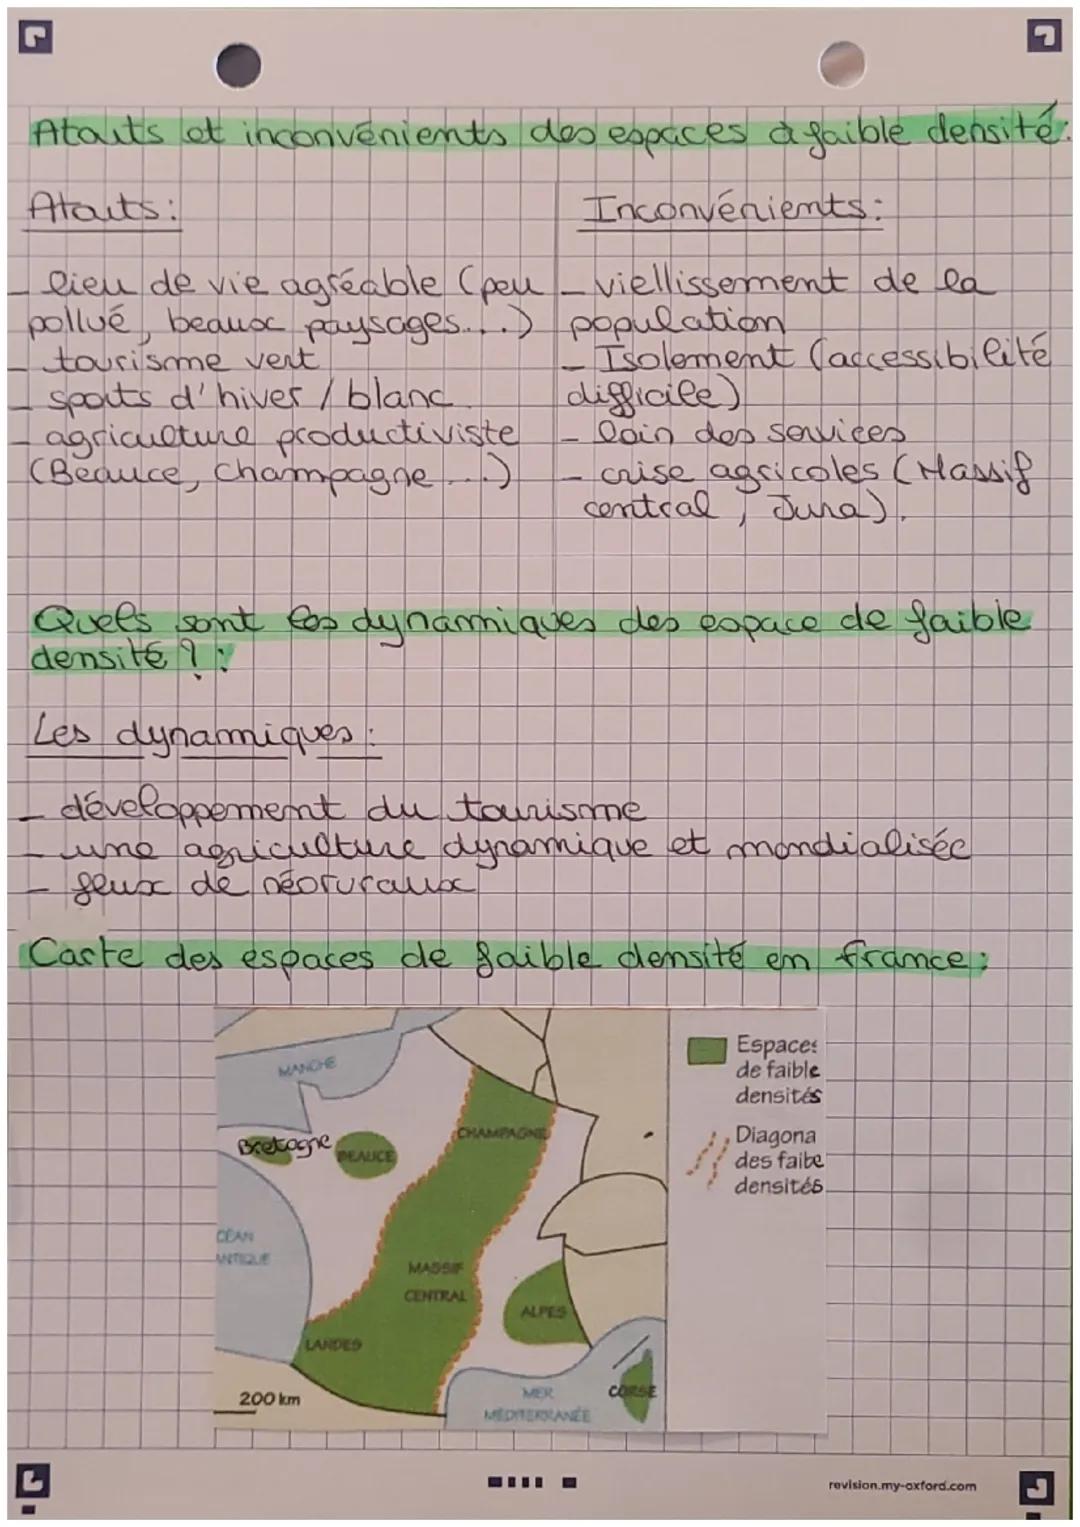 Atouts et inconvénients des espaces à faible densité:
Atouts:
- lieu de vie agréable (peu
pollué, beaux paysages...)
- tourisme vert
- sports d'hiver / blanc
- agriculture productiviste
(Beauce, Champagne...)
Inconvénients:
- viellissement de la
population
- Isolement (accessibilité
difficile)
- loin des services
- crise agricoles (Massif
central, Jura).
Quels sont les dynamiques des espace de faible
densité ? :
Les dynamiques:
- développement du tourisme
- une agriculture dynamique et mondialisée
- feux de néoruraux
Carte des espaces de faible densité en france:
MANCHE
Bretagne
BEAUCE
CHAMPAGNE
CÉAN
ANTIQUE
MASSIF
CENTRAL
ALPES
LANDES
CORSE
MER
MÉDITERRANÉE
200 km
Espaces
de faible
densités
Diagona
des faibe
densités
revision.my-oxford.com